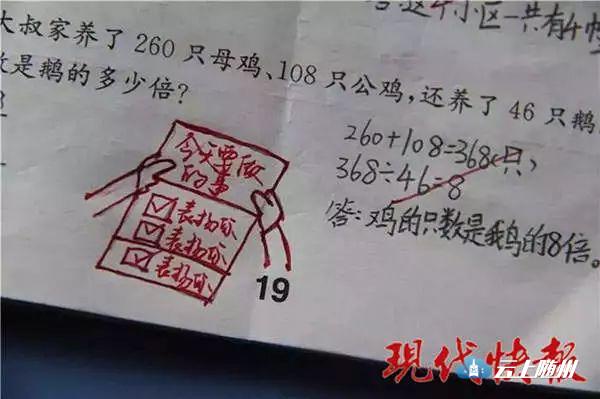 这个小区一共有4幢
大叔家养了 260 只母鸡、108 只公鸡，还养了 46 只鹅
数是鹅的多少倍？
260+108=368(只)
368÷46=8
答：鸡的只数是鹅的8倍。
今天要做
的事
表扬你
表扬你
表扬你
19
现代快报
云上随州